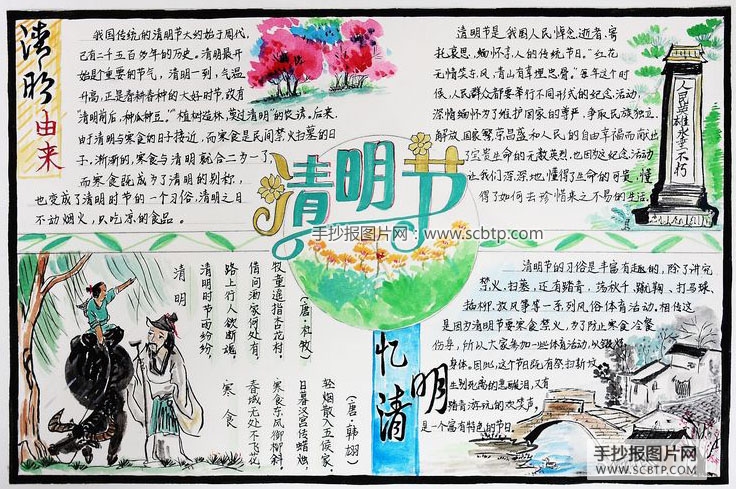 清明
由来
我国传统的清明节大约始于周代,
已有二千五百多年的历史。清明最开
始是个重要的节气,清明一到,气温
升高,正是春耕春种的大好时节,故有
“清明前后,种瓜种豆。”“植树造林,莫过清明”的农谚。后来,
由于清明与寒食的日子接近,而寒食是民间禁火扫墓的日
子,渐渐的,寒食与清明就合二为一了
而寒食既成为了清明的别称,
也变成了清明时节的一个习俗,清明之日
不动烟火,只吃凉的食品。
清明节是我国人民悼念逝者,寄
托哀思,缅怀亲人的传统节日。“红花
无情笑东风,青山有幸埋忠骨。”每年这个时
候,人民群众都要举行不同形式的纪念活动,
深情缅怀为了维护国家的尊严,争取民族独立
解放,国家繁荣昌盛和人民的自由幸福而献出
了宝贵生命的无数英烈,也因故纪念活动
让我们深深地懂得生命的可贵,懂
得了如何去珍惜来之不易的生活。
人民英雄永垂不朽
清明节
手抄报图片网:www.scbtp.com
清明
清明时节雨纷纷,
路上行人欲断魂。
借问酒家何处有,
牧童遥指杏花村。
(唐·杜牧)
寒食
春城无处不飞花,
寒食东风御柳斜。
日暮汉宫传蜡烛,
轻烟散入五侯家。
(唐·韩翃)
忆清明
清明节的习俗是丰富有趣的,除了讲究
禁火、扫墓,还有踏青、荡秋千、蹴鞠、打马球、
插柳、放风筝等一系列风俗体育活动。相传这
是因为清明节要寒食禁火,为了防止寒食冷餐
伤身,所以大家参加一些体育活动,以锻炼
身体。因此,这个节日既有祭扫新坟
生别死离的悲酸泪,又有
踏青游玩的欢笑声,
是一个富有特色的节日。
手抄报图片网
WWW.SCBTP.COM